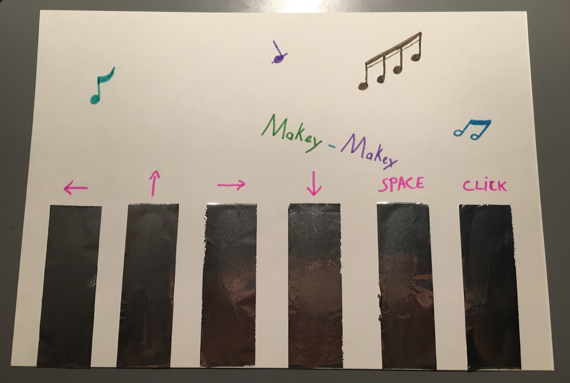 Makey - Makey
← ↑ → ↓ SPACE CLICK